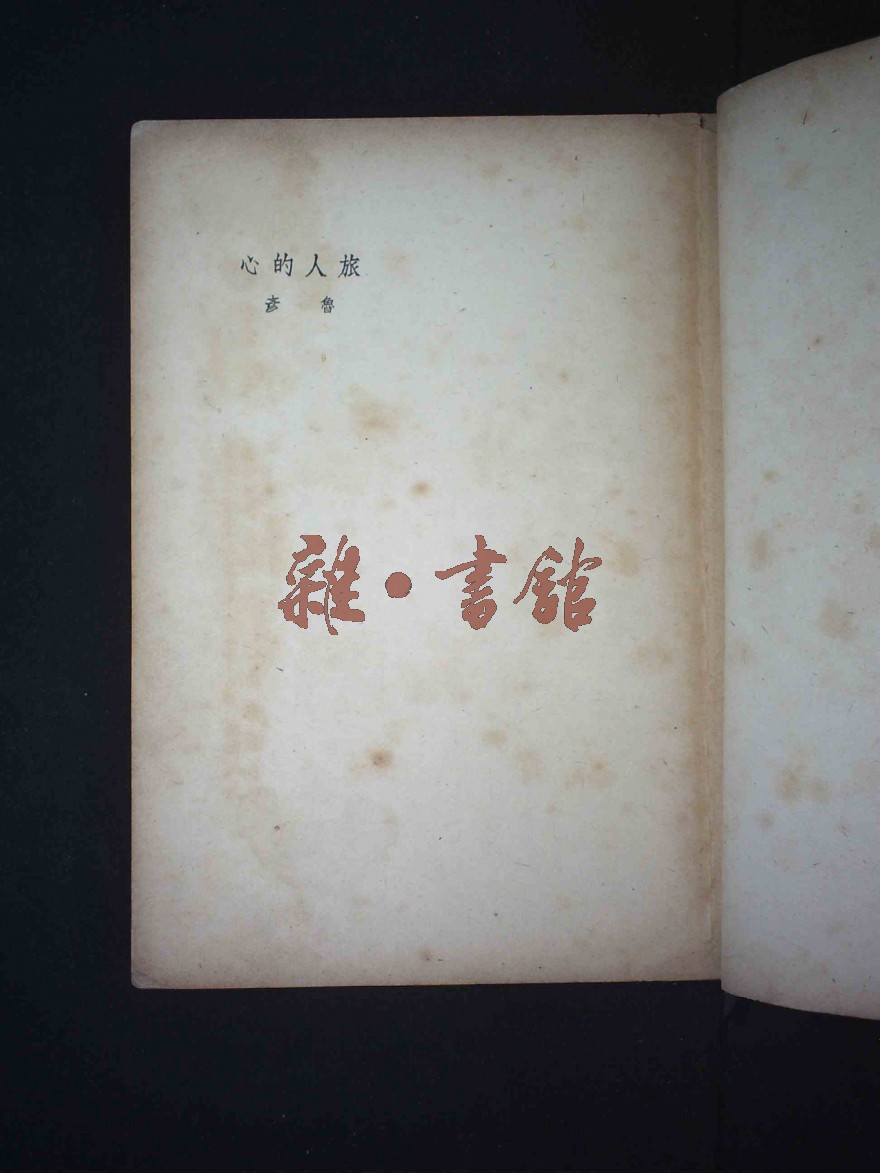 旅人的心
魯彥
雜·書館